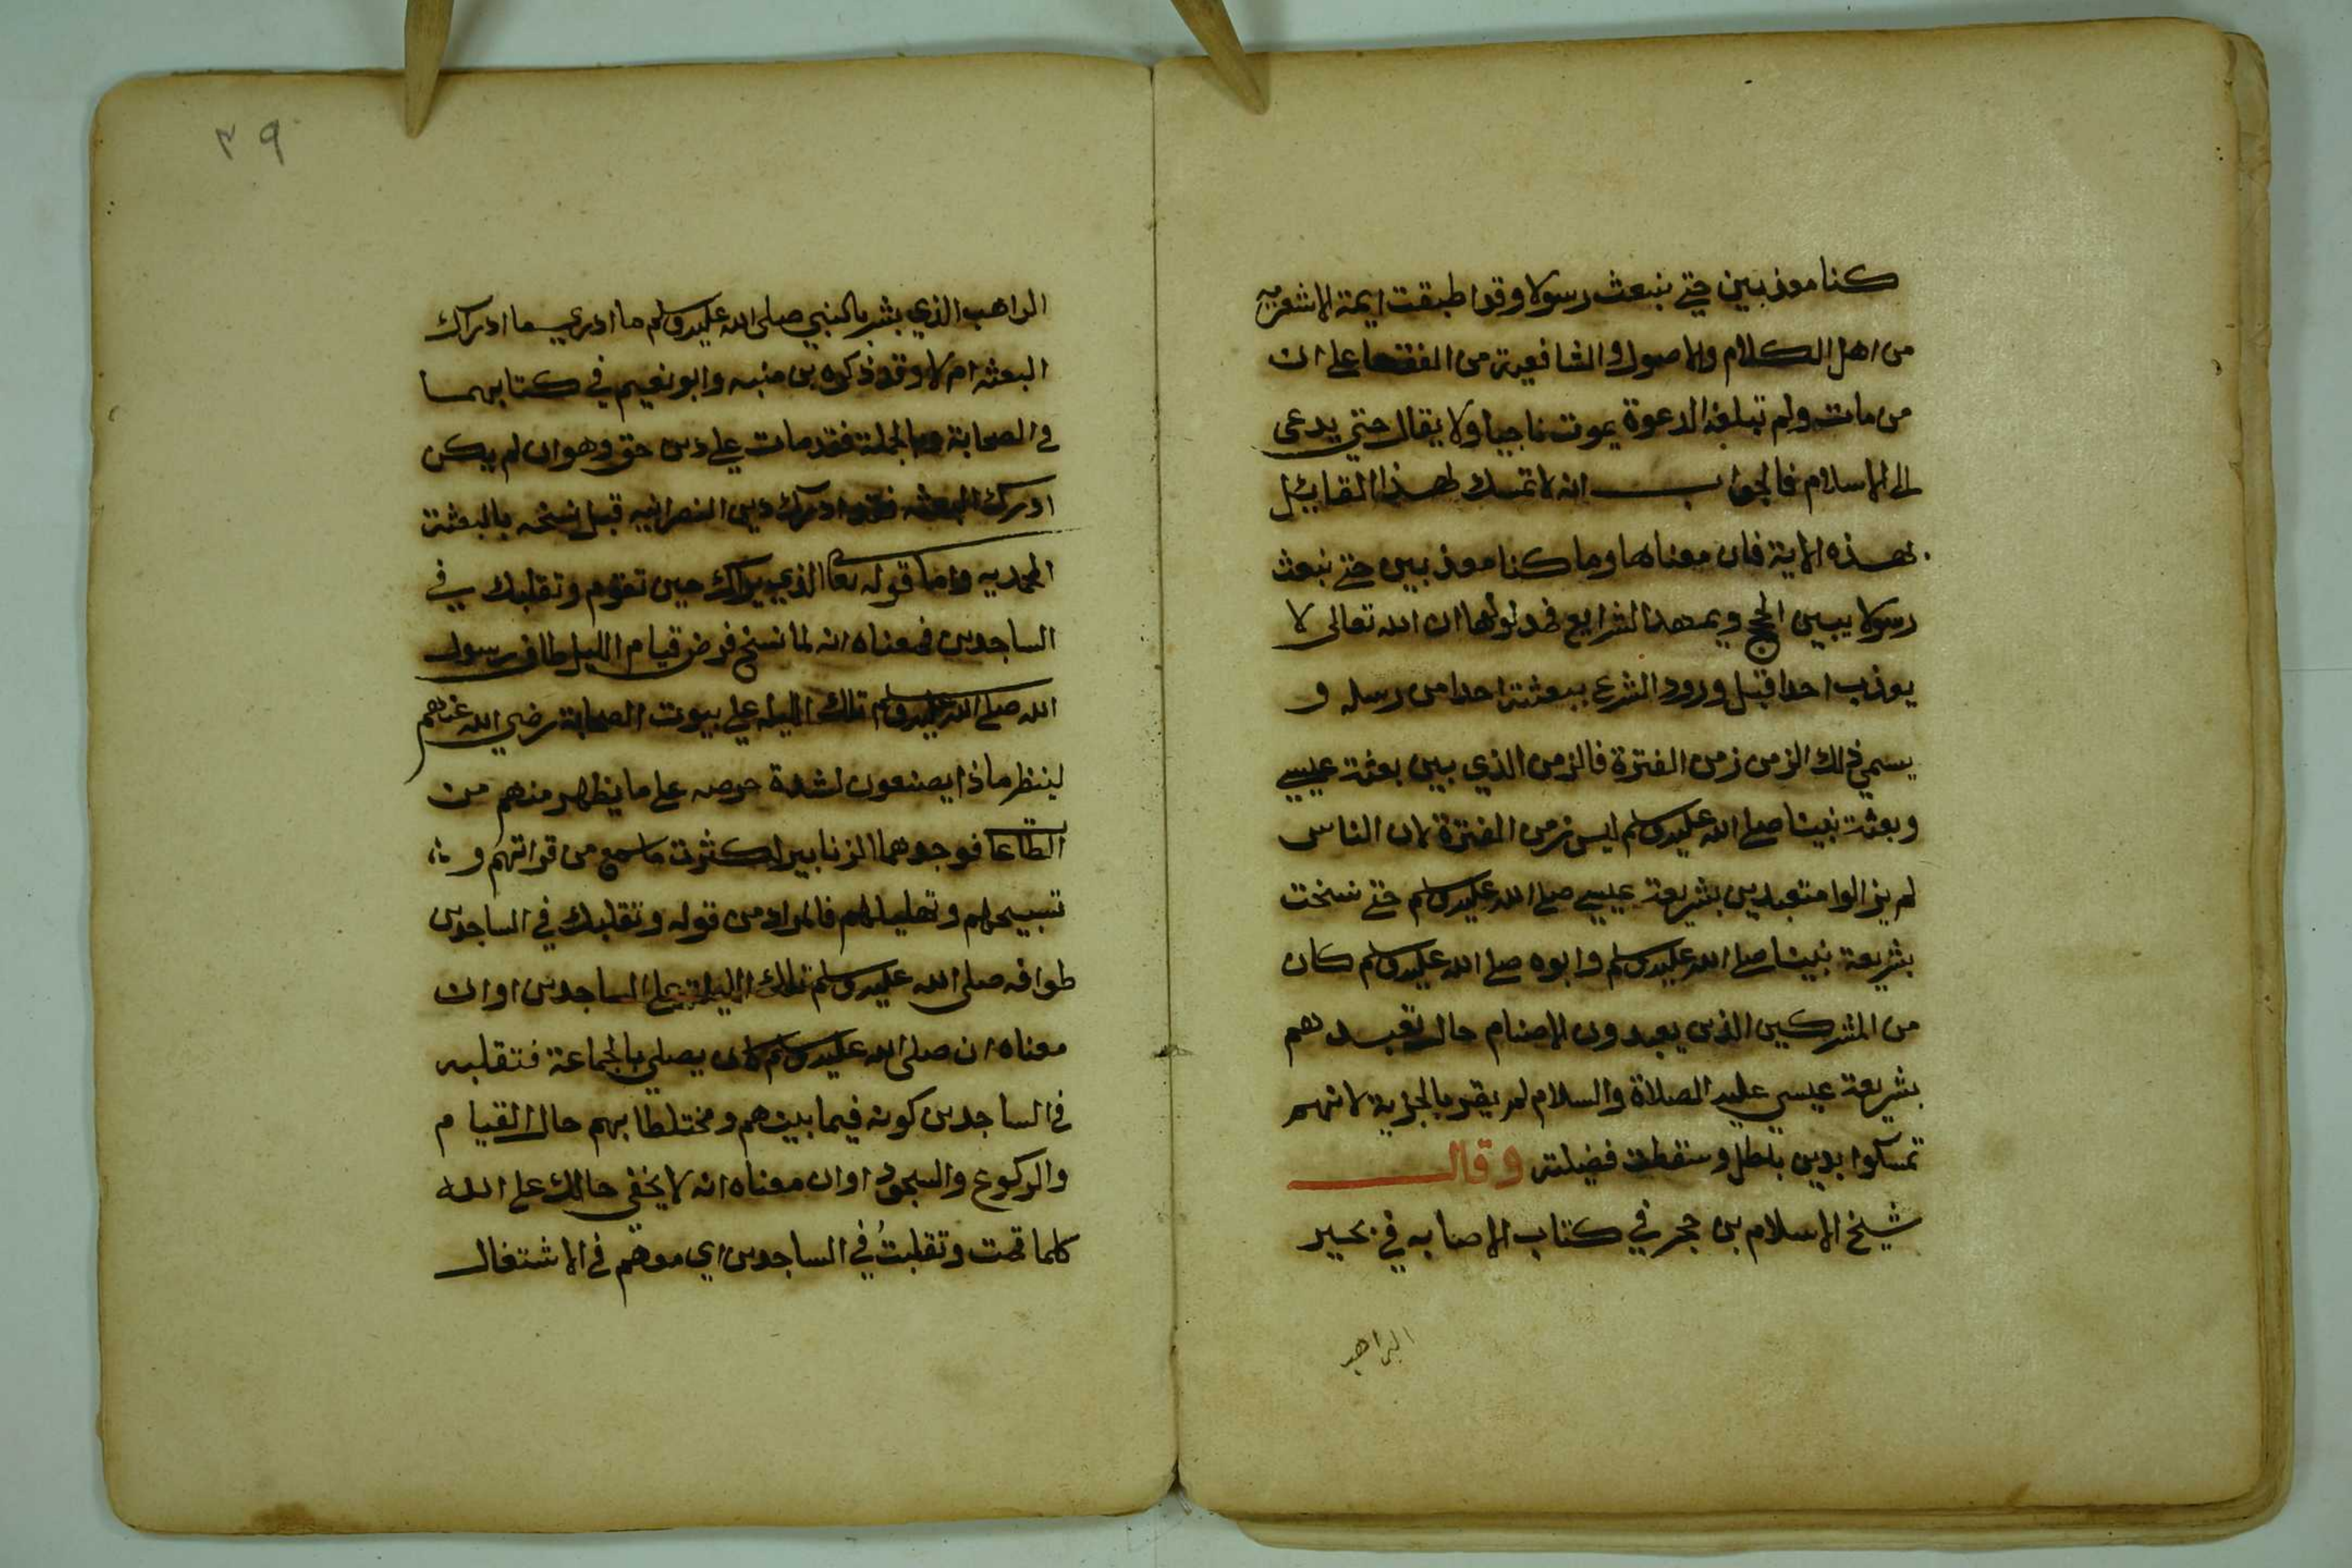 كنا معذبين حتي نبعث رسولا وقد اطبقت ايمة الاشعريه
من اهل الكلام والاصول والشافعية من الفقها علي ان
من مات ولم تبلغه الدعوة يموت ناجيا ولا يقال حتي يدعي
الي الاسلام فالجواب انه لا تمسك لهذا القايل
بهذه الاية فان معناها وما كنا معذبين حتي نبعث
رسولا يبين الحج ويمهد الشرايع فمدلولها ان الله تعالي لا
يعذب احدا قبل ورود الشرع ببعثة احدا من رسله و
يسمي ذلك الزمن زمن الفترة فالزمن الذي بين بعثة عيسي
وبعثة نبينا صلي الله عليه وسلم ليس زمن الفترة لان الناس
لم يزالوا متعبدين بشريعة عيسي صلي الله عليه وسلم حتي نسخت
بشريعة نبينا صلي الله عليه وسلم وابوه صلي الله عليه وسلم كان
من المشركين الذين يعبدون الاصنام حال تعبدهم
بشريعة عيسي عليه الصلاة والسلام لم يقر بالجزية لانهم
تمسكوا بدين باطل وسقطت فضيلته وقال
شيخ الاسلام بن حجر في كتاب الاصابه في بحير
الراهب
٣٩
الراهب الذي بشر بالنبي صلي الله عليه وسلم ما ادري ما ادراك
البعثه ام لا وقد ذكره بن منبه وابو نعيم في كتابهما
في الصحابة وبالجملة فقد مات علي دين حق وهو ان لم يكن
ادرك البعثه فقد ادرك دين النصرانيه قبل نسخه بالبعثة
المحمديه واما قوله تعا الذي يراك حين تقوم وتقلبك في
الساجدين فمعناه انه لما نسخ فرض قيام الليل طاف رسول
الله صلي الله عليه وسلم تلك الليله علي بيوت الصحابة رضي الله عنهم
لينظر ماذا يصنعون لشدة حرصه علي ما يظهر منهم من
الطاعا فوجدهما الزنابير لكثرت ما سمع من قراتهم و
تسبيحهم وتهليلهم فالمراد من قوله وتقلبك في الساجدين
طوافه صلي الله عليه وسلم تلك الليلة علي الساجدين او ان
معناه ان صلي الله عليه وسلم كان يصلي بالجماعة فتقلبه
في الساجدين كونه فيما بينهم ومختلطا بهم حال القيام
والركوع والسجود او ان معناه انه لا يخفي حالك علي الله
كلما قمت وتقلبتُ في الساجدين اي معهم في الاشتغال